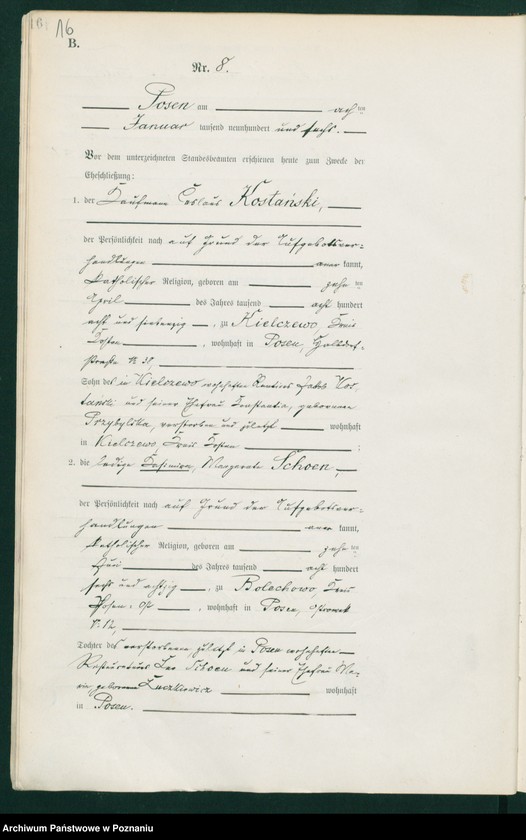 16
B.
Nr. 8.
Posen am acht ten
Januar tausend neunhundert und sechs.
Vor dem unterzeichneten Standesbeamten erschienen heute zum Zwecke der
Eheschließung:
1. der Kaufmann Ceslaus Kostański,
der Persönlichkeit nach auf Grund der Aufgebotsver=
handlungen aner kannt,
katholischer Religion, geboren am zehn ten
April des Jahres tausend acht hundert
acht und siebenzig, zu Kielczewo, Kreis
Kosten, wohnhaft in Posen, Halbdorf-
straße № 38,
Sohn des in Kielczewo wohnhaften Rentiers Jakob Kos-
tański und seiner Ehefrau Konstantia, geborenen
Przybylska, verstorben und zuletzt wohnhaft
in Kielczewo, Kreis Kosten ;
2. die ledige Kasimira, Margarete Schoen,
der Persönlichkeit nach auf Grund der Aufgebotsver=
handlungen aner kannt,
katholischer Religion, geboren am zehn ten
Juni des Jahres tausend acht hundert
sechs und achtzig, zu Bolechowo, Kreis
Posen=Ost, wohnhaft in Posen, Ostrowek
№ 12,
Tochter des verstorbenen, zuletzt in Posen wohnhaften
Restaurateurs Leo Schoen und seiner Ehefrau Ma-
rie, geborenen Luczkiewicz wohnhaft
in Posen.
Archiwum Państwowe w Poznaniu